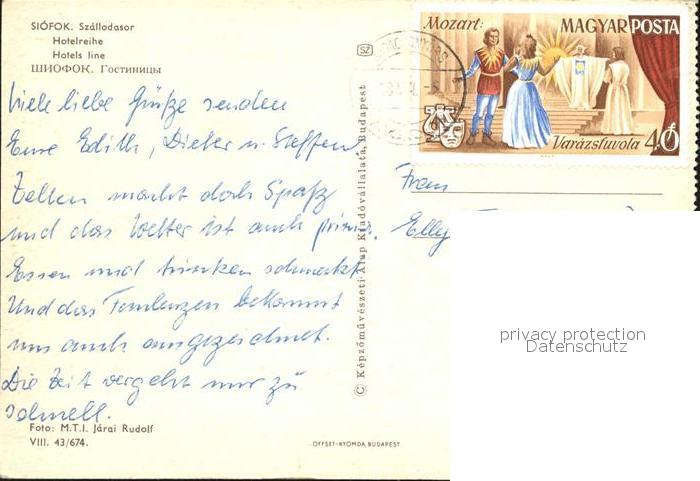 SIÓFOK. Szállodasor
Hotelreihe
Hotels line
ШИОФОК. Гостиницы
Viele liebe Grüße senden
Eure Edith, Dieter u. Steffen
Zelten macht doch Spaß
und das Wetter ist auch prima.
Essen und trinken schmeckt
Und das Faulenzen bekommt
uns auch ausgezeichnet.
Die Zeit vergeht nur zu
schnell.
Foto: M.T.I. Járai Rudolf
VIII. 43/674.
SZ
© Képzőművészeti Alap Kiadóvállalata, Budapest
OFFSET-NYOMDA, BUDAPEST
Mozart:
MAGYAR POSTA
Varázsfuvola 40f
Frau
Elly
privacy protection
Datenschutz